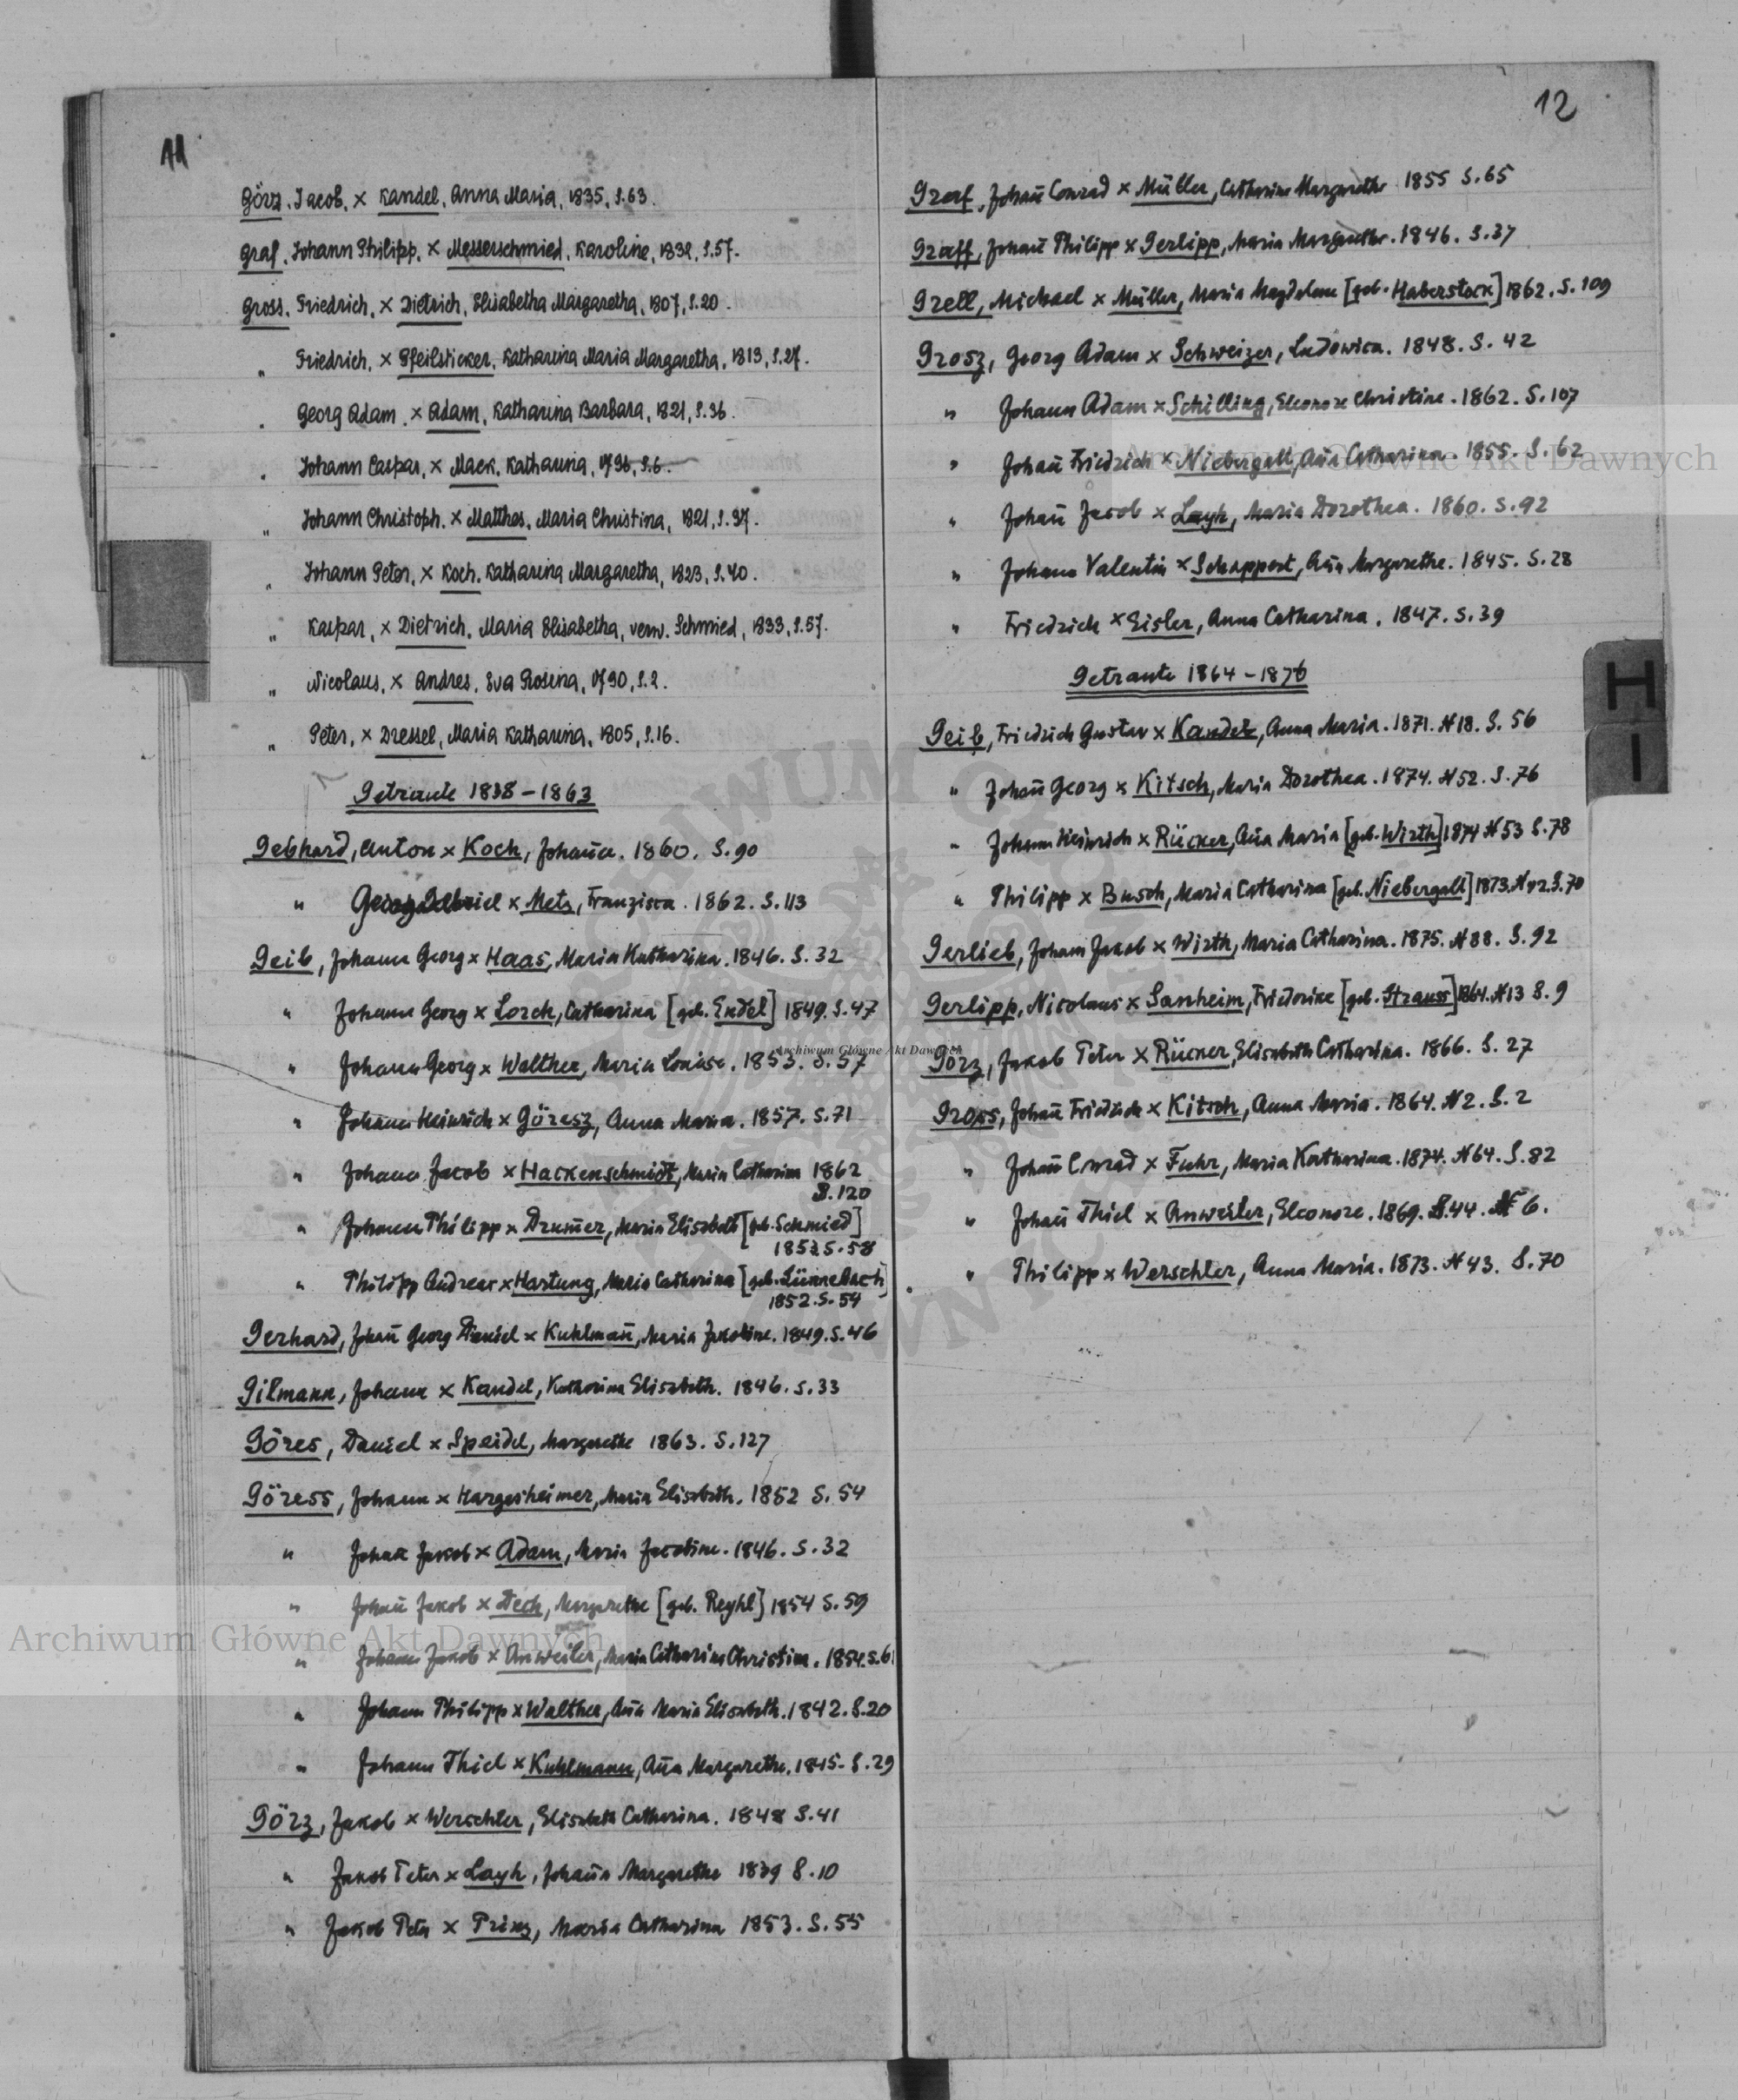 11
Görz, Jacob, × Kandel, Anna Maria, 1835, S.63.
Graf, Johann Philipp, × Messerschmied, Karoline, 1832, S.57.
Gross, Friedrich, × Dietrich, Elisabetha Margaretha, 1807, S.20.
" Friedrich, × Pfeilsticker, Katharina Maria Margaretha, 1813, S.27.
" Georg Adam, × Adam, Katharina Barbara, 1821, S.36.
" Johann Caspar, × Mack, Katharina, 1796, S.6.
" Johann Christoph, × Matthes, Maria Christina, 1821, S.37.
" Johann Peter, × Koch, Katharina Margaretha, 1823, S.40.
" Kaspar, × Dietrich, Maria Elisabetha, verw. Schmied, 1833, S.57.
" Nicolaus, × Andres, Eva Rosina, 1790, S.2.
" Peter, × Dressel, Maria Katharina, 1805, S.16.
Getraute 1838–1863
Gebhard, Anton × Koch, Johan̄a. 1860. S.90
" Georg Gabriel × Metz, Franzisca. 1862. S.113
Geib, Johann Georg × Haas, Maria Katharina. 1846. S.32
" Johann Georg × Lorch, Catharina [geb. Endel] 1849. S.47
" Johann Georg × Walther, Maria Louise. 1853. S.57
" Johann Heinrich × Göresz, Anna Maria. 1857. S.71
" Johann Jacob × Hackenschmidt, Maria Catharina 1862
S.120
" Johann Philipp × Drum̄er, Maria Elisabeth [geb. Schmied]
1853 S.58
" Philipp Andreas × Hartung, Maria Catharina [geb. Lünnebach]
1852. S.54
Gerhard, Johan̄ Georg Daniel × Kuhlman̄, Maria Jakobine. 1849. S.46
Gilmann, Johann × Kandel, Katharina Elisabeth. 1846. S.33
Göres, Daniel × Speidel, Margarethe 1863. S.127
Göress, Johann × Hargesheimer, Maria Elisabeth. 1852 S.54
" Johan̄ Jakob × Adam, Maria Jacobine. 1846. S.32
" Johan̄ Jakob × Dech, Margarethe [geb. Reyhl] 1854 S.59
" Johann Jakob × Anweiler, Maria Catharina Christina. 1854. S.61
" Johann Philipp × Walther, An̄a Maria Elisabeth. 1842. S.20
" Johann Thiel × Kuhlmann, An̄a Margarethe. 1845. S.29
Görz, Jakob × Werschler, Elisabeth Catharina. 1848 S.41
" Jakob Peter × Layh, Johan̄a Margarethe 1839 S.10
" Jakob Peter × Prinz, Maria Catharina 1853. S.55
12
Graf, Johan̄ Conrad × Müller, Catharina Margarethe 1855 S.65
Graff, Johan̄ Philipp × Gerlipp, Maria Margarethe. 1846. S.37
Grell, Michael × Müller, Maria Magdalena [geb. Haberstock] 1862. S.109
Grosz, Georg Adam × Schweizer, Ludowica. 1848. S.42
" Johann Adam × Schilling, Eleonore Christine. 1862. S.107
" Johan̄ Friedrich × Niebergall, An̄a Catharina. 1855. S.62
" Johan̄ Jacob × Layh, Maria Dorothea. 1860. S.92
" Johann Valentin × Schappert, An̄a Margarethe. 1845. S.28
" Friedrich × Eisler, Anna Catharina. 1847. S.39
Getraute 1864–1876
Geib, Friedrich Gustav × Kandel, Anna Maria. 1871. N18. S.56
" Johan̄ Georg × Kitsch, Maria Dorothea. 1874. N52. S.76
" Johann Heinrich × Rücker, An̄a Maria [geb. Wirth] 1874 N53 S.78
" Philipp × Busch, Maria Catharina [geb. Niebergall] 1873. N42 S.70
Gerlieb, Johann Jakob × Wirth, Maria Catharina. 1875. N88. S.92
Gerlipp, Nicolaus × Sanheim, Friedorike [geb. Strauss] 1864. N13 S.9
Görz, Jakob Peter × Rücker, Elisabeth Catharina. 1866. S.27
Gross, Johan̄ Friedrich × Kitsch, Anna Maria. 1864. N2. S.2
" Johan̄ Conrad × Fuhr, Maria Katharina. 1874. N64. S.82
" Johan̄ Thiel × Anweiler, Eleonore. 1869. S.44. N 6.
" Philipp × Werschler, Anna Maria. 1873. N43. S.70
H
I
Archiwum Główne Akt Dawnych
Archiwum Główne Akt Dawnych
Archiwum Główne Akt Dawnych